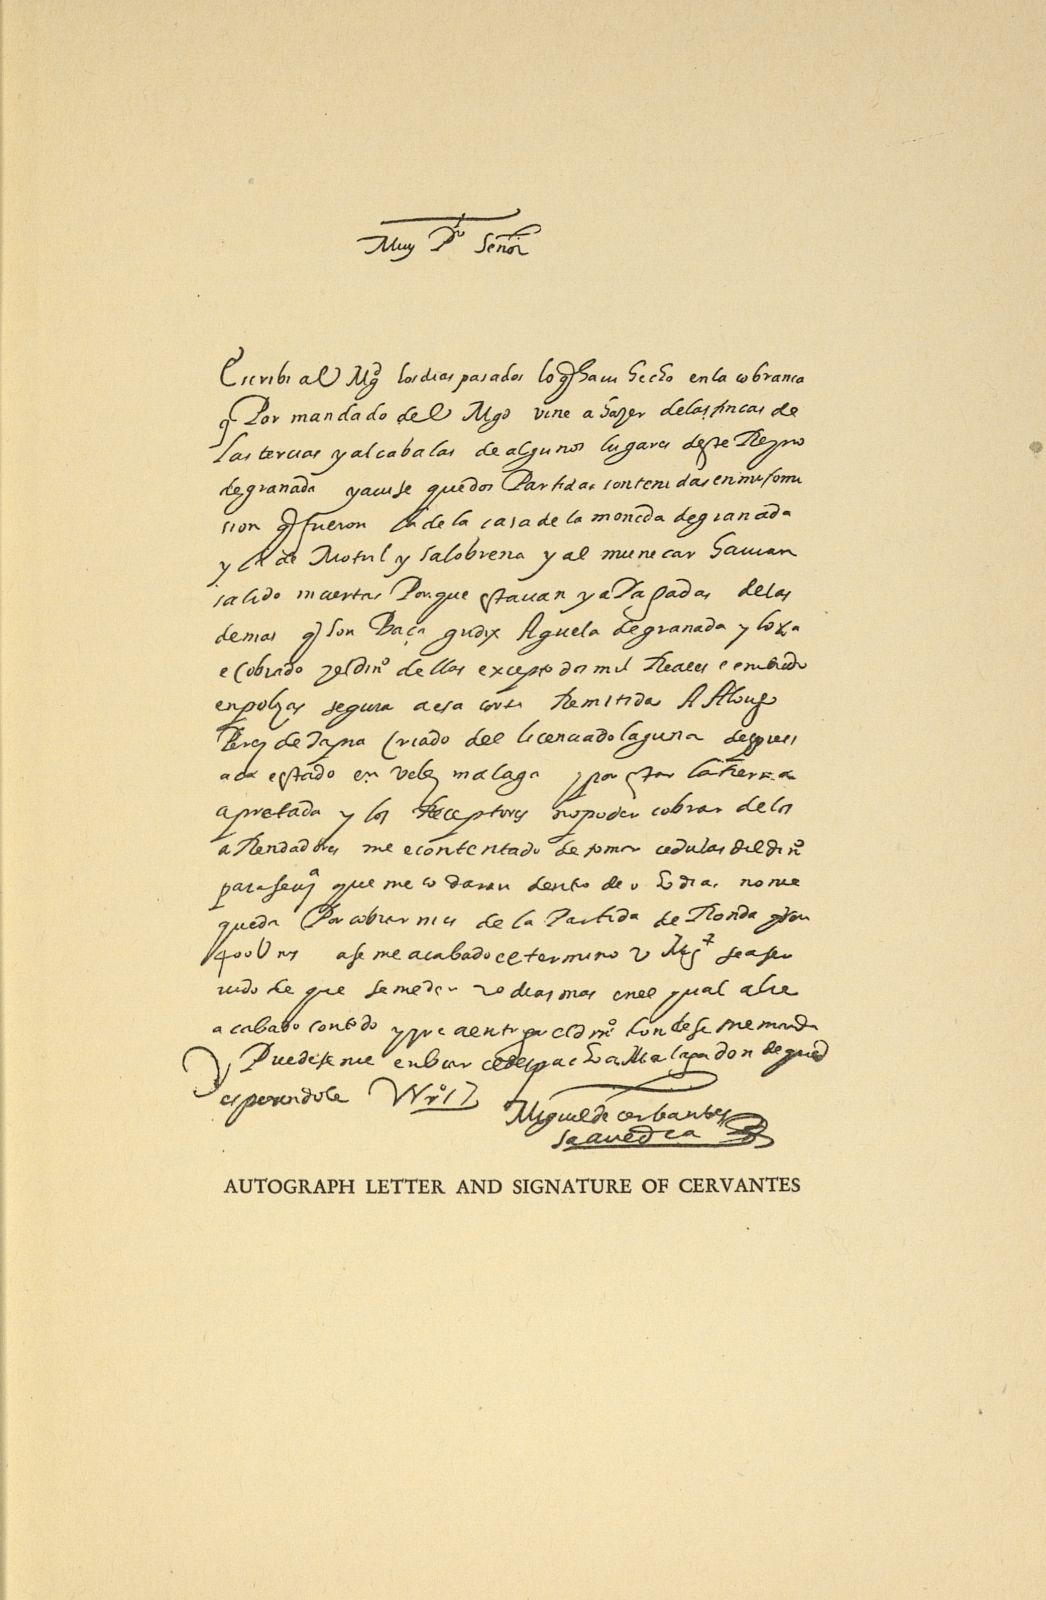 Muy P^r Señor
Escribi a V Mg^d los dias pasados lo q̃ hauia hecho en la cobranca
q̃ Por mandado de V Mgd vine a hazer de las fincas de
las tercias y alcabalas de algunos lugares deste Reyno
de granada y ansi se que dos Partidas contenidas en mi comi
sion q̃ fueron la de la casa de la moneda de granada
y la de Motril y salobrena y al munecar hauian
salido inciertas Porque estauan ya Pagadas de las
demas q̃ son Baça guadix Aguela de granada y loxa
e cobrado el din^o de ellas excepto dos mil Reales e embiado
en polizas segura a esa corte Remitida A Alonso
Perez de Tapia Criado del licenciado laguna despues
aca e estado en velez malaga y por estar la tierra
apretada y los Receptores no poder cobrar de los
aRendadores me e contentado de tomar cedulas del din^o
para seu^a que me lo daran dentro de ho dias no me
queda Por cobrar mas de la Partida de Ronda q̃ son
400U ms a se me acabado el termino V Mg^d sea ser
uido de que se me den 20 dias mas en el qual abre
acabado con todo y yre a entregar el din^o donde se me manda
y Puedeseme enbiar el despacho a Malaga don de quedo
esperandole
Miguel de cerbantes
saavedra
AUTOGRAPH LETTER AND SIGNATURE OF CERVANTES